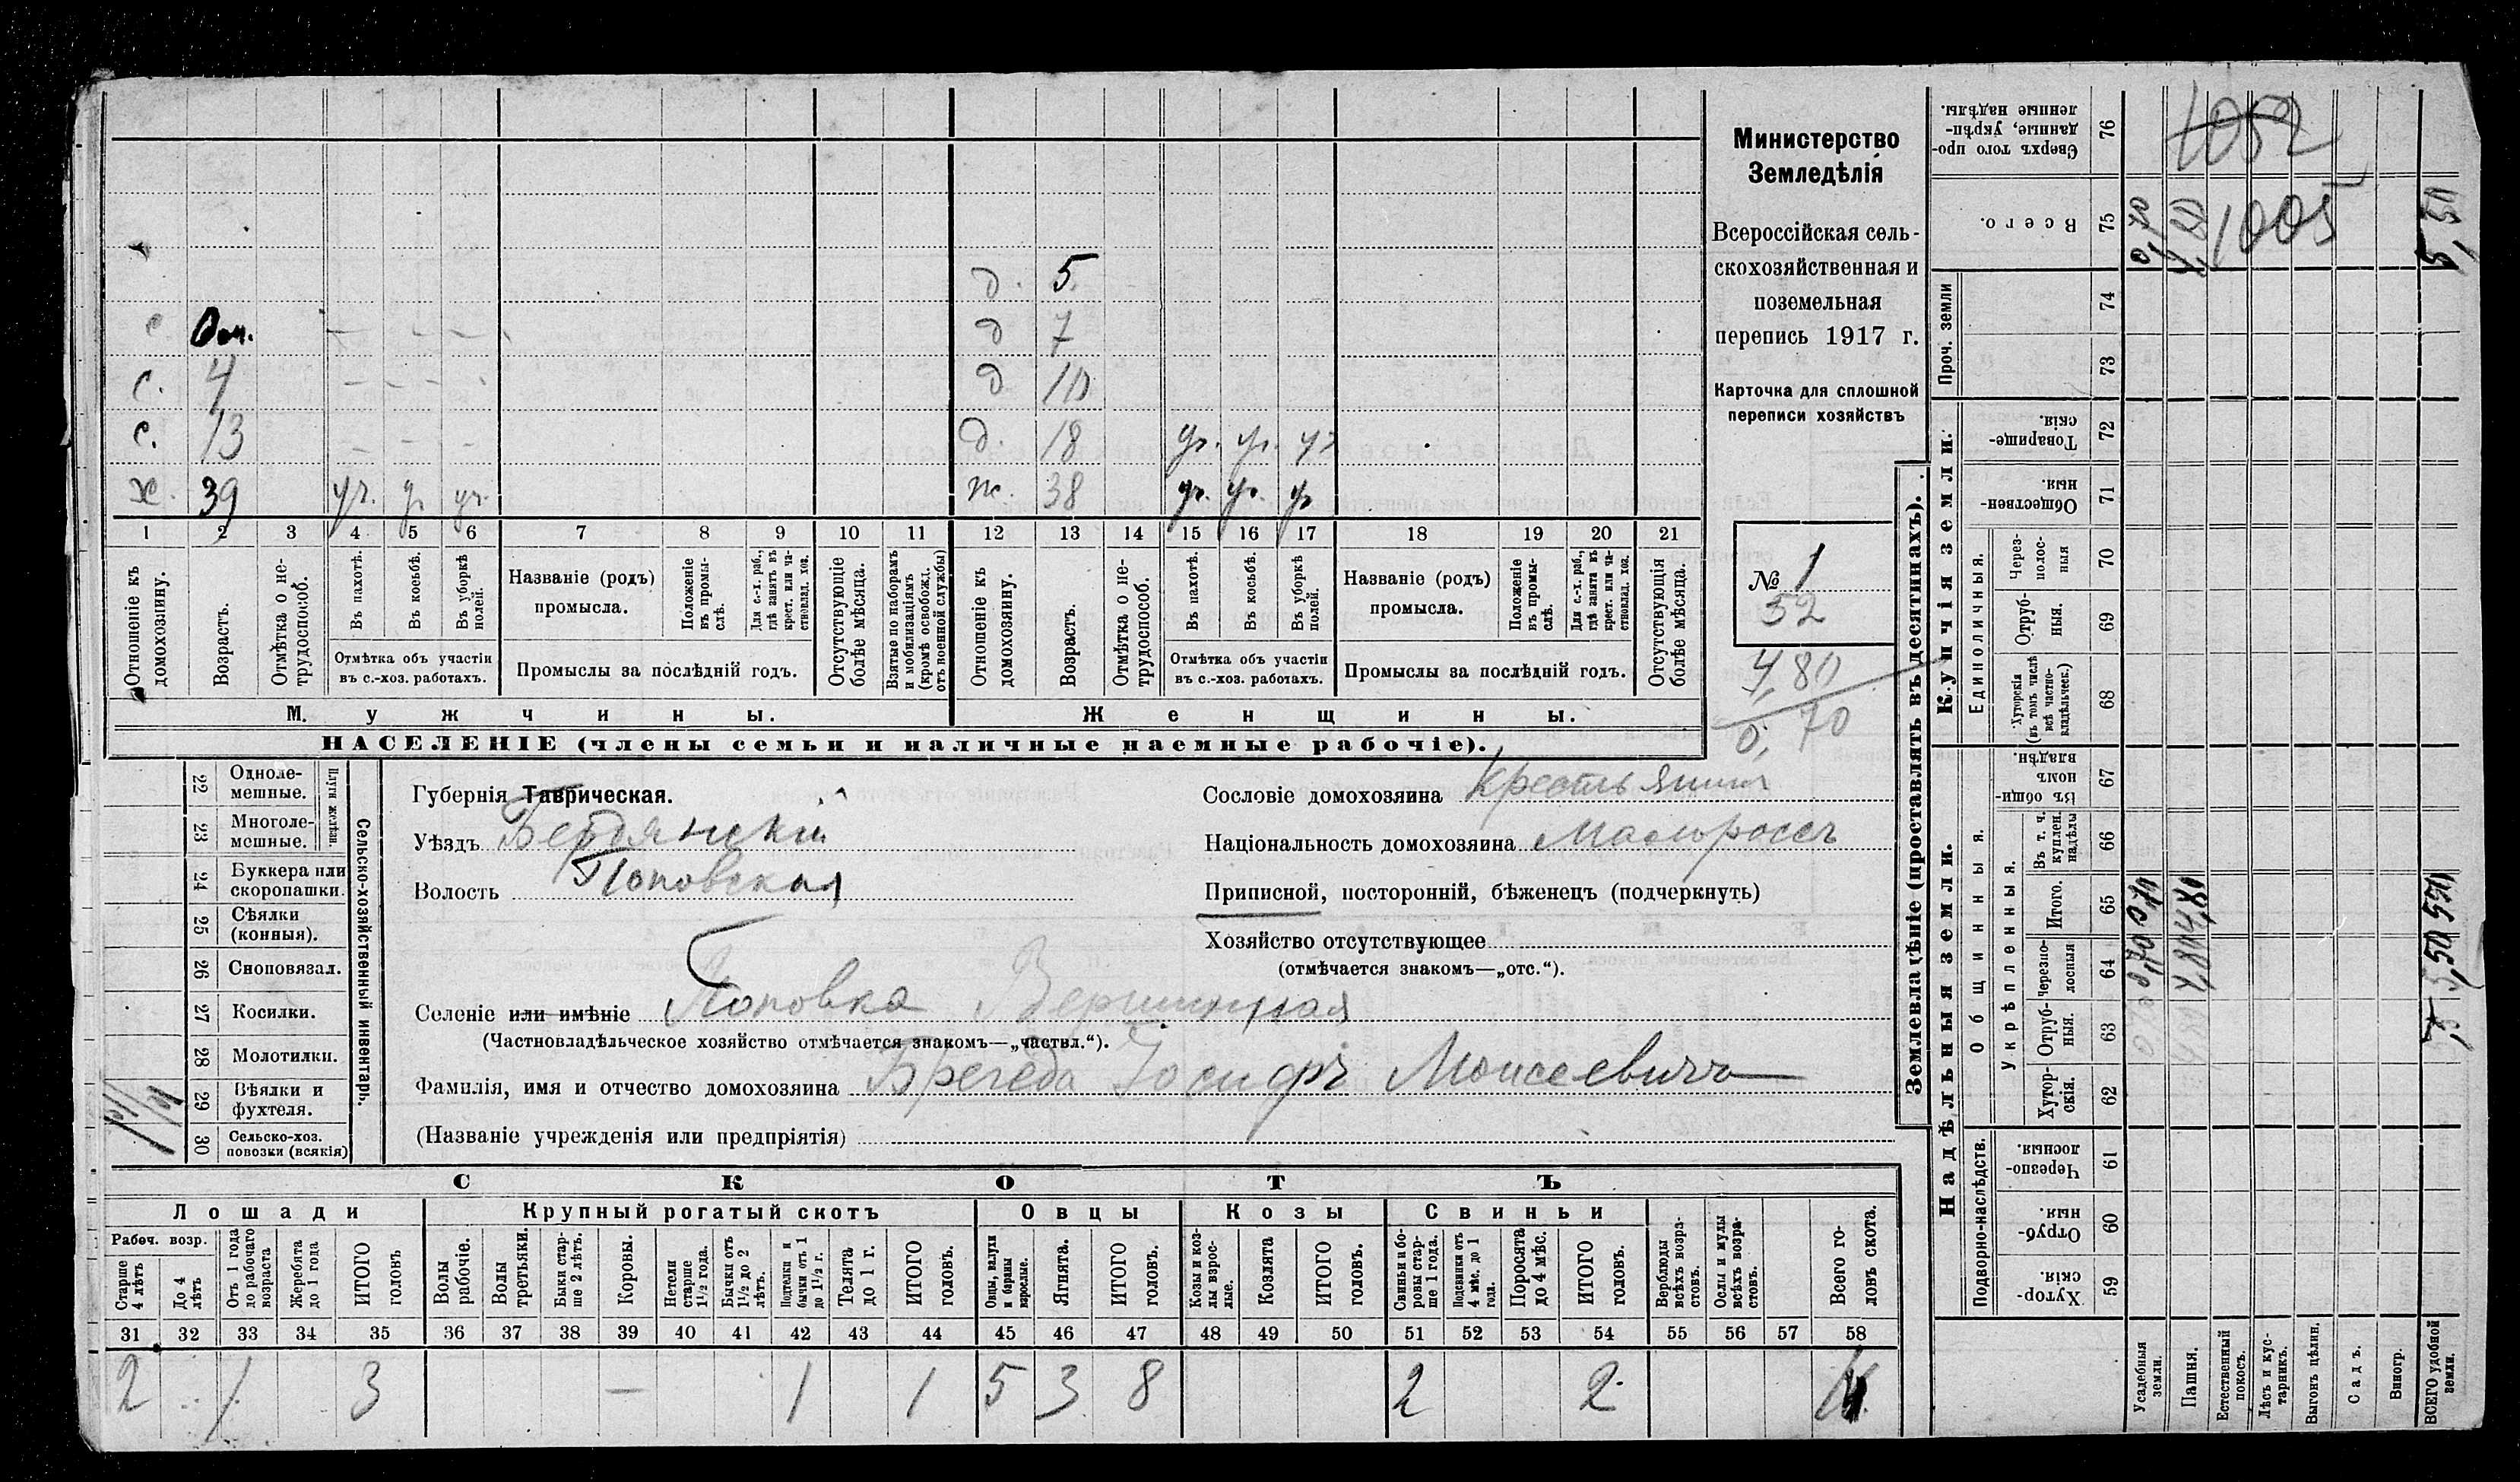 Министерство
Земледѣлія
Всероссійская сель-
скохозяйственная и
поземельная
перепись 1917 г.
Карточка для сплошной
переписи хозяйствъ
№ 1
52
4,80
0,70
д. 5
с. д 7
с. 4 д 10
с. 13 д. 18 уч. уч. уч
х. 39 уч. у уч. ж. 38 уч. уч. уч
1 2 3 4 5 6 7 8 9 10 11 12 13 14 15 16 17 18 19 20 21
Отношеніе къ домохозяину.
Возрастъ.
Отмѣтка о не-трудоспособ.
Въ пахотѣ.
Въ косьбѣ.
Въ уборкѣ полей.
Отмѣтка объ участіи
въ с.-хоз. работахъ.
Названіе (родъ)
промысла.
Положеніе въ промы-слѣ.
Для с.-х. раб., гдѣ занятъ въ крест. или ча-стновлад. хоз.
Промыслы за послѣдній годъ.
Отсутствующіе болѣе мѣсяца.
Взятые по наборамъ и мобилизаціямъ (кромѣ освобожд. отъ военной службы)
Отношеніе къ домохозяину.
Возрастъ.
Отмѣтка о не-трудоспособ.
Въ пахотѣ.
Въ косьбѣ.
Въ уборкѣ полей.
Отмѣтка объ участіи
въ с.-хоз. работахъ.
Названіе (родъ)
промысла.
Положеніе въ промы-слѣ.
Для с.-х. раб., гдѣ занята въ крест. или ча-стновлад. хоз.
Промыслы за послѣдній годъ.
Отсутствующія болѣе мѣсяца.
Мужчины.
Женщины.
НАСЕЛЕНІЕ (члены семьи и наличные наемные рабочіе).
22 Одноле-мешные.
23 Многоле-мешные.
Плуги желѣзн.
24 Буккера или скоропашки.
25 Сѣялки (конныя).
26 Сноповязал.
27 Косилки.
28 Молотилки.
29 Вѣялки и фухтеля.
30 Сельско-хоз. повозки (всякія)
Сельско-хозяйственный инвентарь.
Губернія Таврическая.
Уѣздъ Бердянскій
Волость Поповская
Сословіе домохозяина Крестьянин
Національность домохозяина Малоросъ
Приписной, посторонній, бѣженецъ (подчеркнуть)
Хозяйство отсутствующее
(отмѣчается знакомъ—„отс.“).
Селеніе или имѣніе Поповка
(Частновладѣльческое хозяйство отмѣчается знакомъ—„частвл.“).
Фамилія, имя и отчество домохозяина Брегеда Іосифъ Моисеевичъ
(Названіе учрежденія или предпріятія)
СКОТЪ
Лошади Крупный рогатый скотъ Овцы Козы Свиньи
Рабоч. возр.
Старше 4 лѣтъ
До 4 лѣтъ
Отъ 1 года до рабочаго возраста
Жеребята до 1 года
ИТОГО головъ
Волы рабочіе.
Волы третьяки.
Быки стар-ше 2 лѣтъ.
Коровы.
Нетели старше 1½ года.
Бычки отъ 1½ до 2 лѣтъ.
Подтелки и бычки отъ 1 до 1½ г.
Телята до 1 г.
ИТОГО головъ.
Овцы, валухи и бараны взрослые.
Ягнята.
ИТОГО головъ.
Козы и коз-лы взрос-лые.
Козлята
ИТОГО головъ.
Свиньи и бо-ровы стар-ше 1 года.
Подсвинки отъ 4 мѣс. до 1 года.
Поросята до 4 мѣс.
ИТОГО головъ.
Верблюды всѣхъ возра-стовъ.
Ослы и мулы всѣхъ возра-стовъ.
Всего го-ловъ скота.
31 32 33 34 35 36 37 38 39 40 41 42 43 44 45 46 47 48 49 50 51 52 53 54 55 56 57 58
2 1 3 — 1 1 5 3 8 2 2
Землевладѣніе (проставлять въ десятинахъ).
Надѣльныя земли.
Купчія земли.
Проч. земли
Подворно-наслѣдств.
Общинныя.
Укрѣпленныя.
Единоличныя.
Хутор-скія. 59
Отруб-ныя. 60
Черезпо-лосныя 61
Хутор-скія. 62
Отруб-ныя. 63
Черезпо-лосныя 64
Итого. 65
Въ т. ч. куплен. надѣлы 66
Въ общи-номъ владѣн. 67
Хуторскія (въ томъ числѣ всѣ частно-владѣльческ.) 68
Отруб-ныя. 69
Через-полос-ныя 70
Обществен-ныя. 71
Товарище-скія. 72
73
74
Всего. 75
Сверхъ того про-данные, укрѣп-ленные надѣлы. 76
Усадебныя земли.
Пашня.
Естественный покосъ.
Лѣсъ и кус-тарникъ.
Выгонъ цѣлин.
Садъ.
Виногр.
ВСЕГО удобной земли.
1052
1005
0,70
4,80
5,50